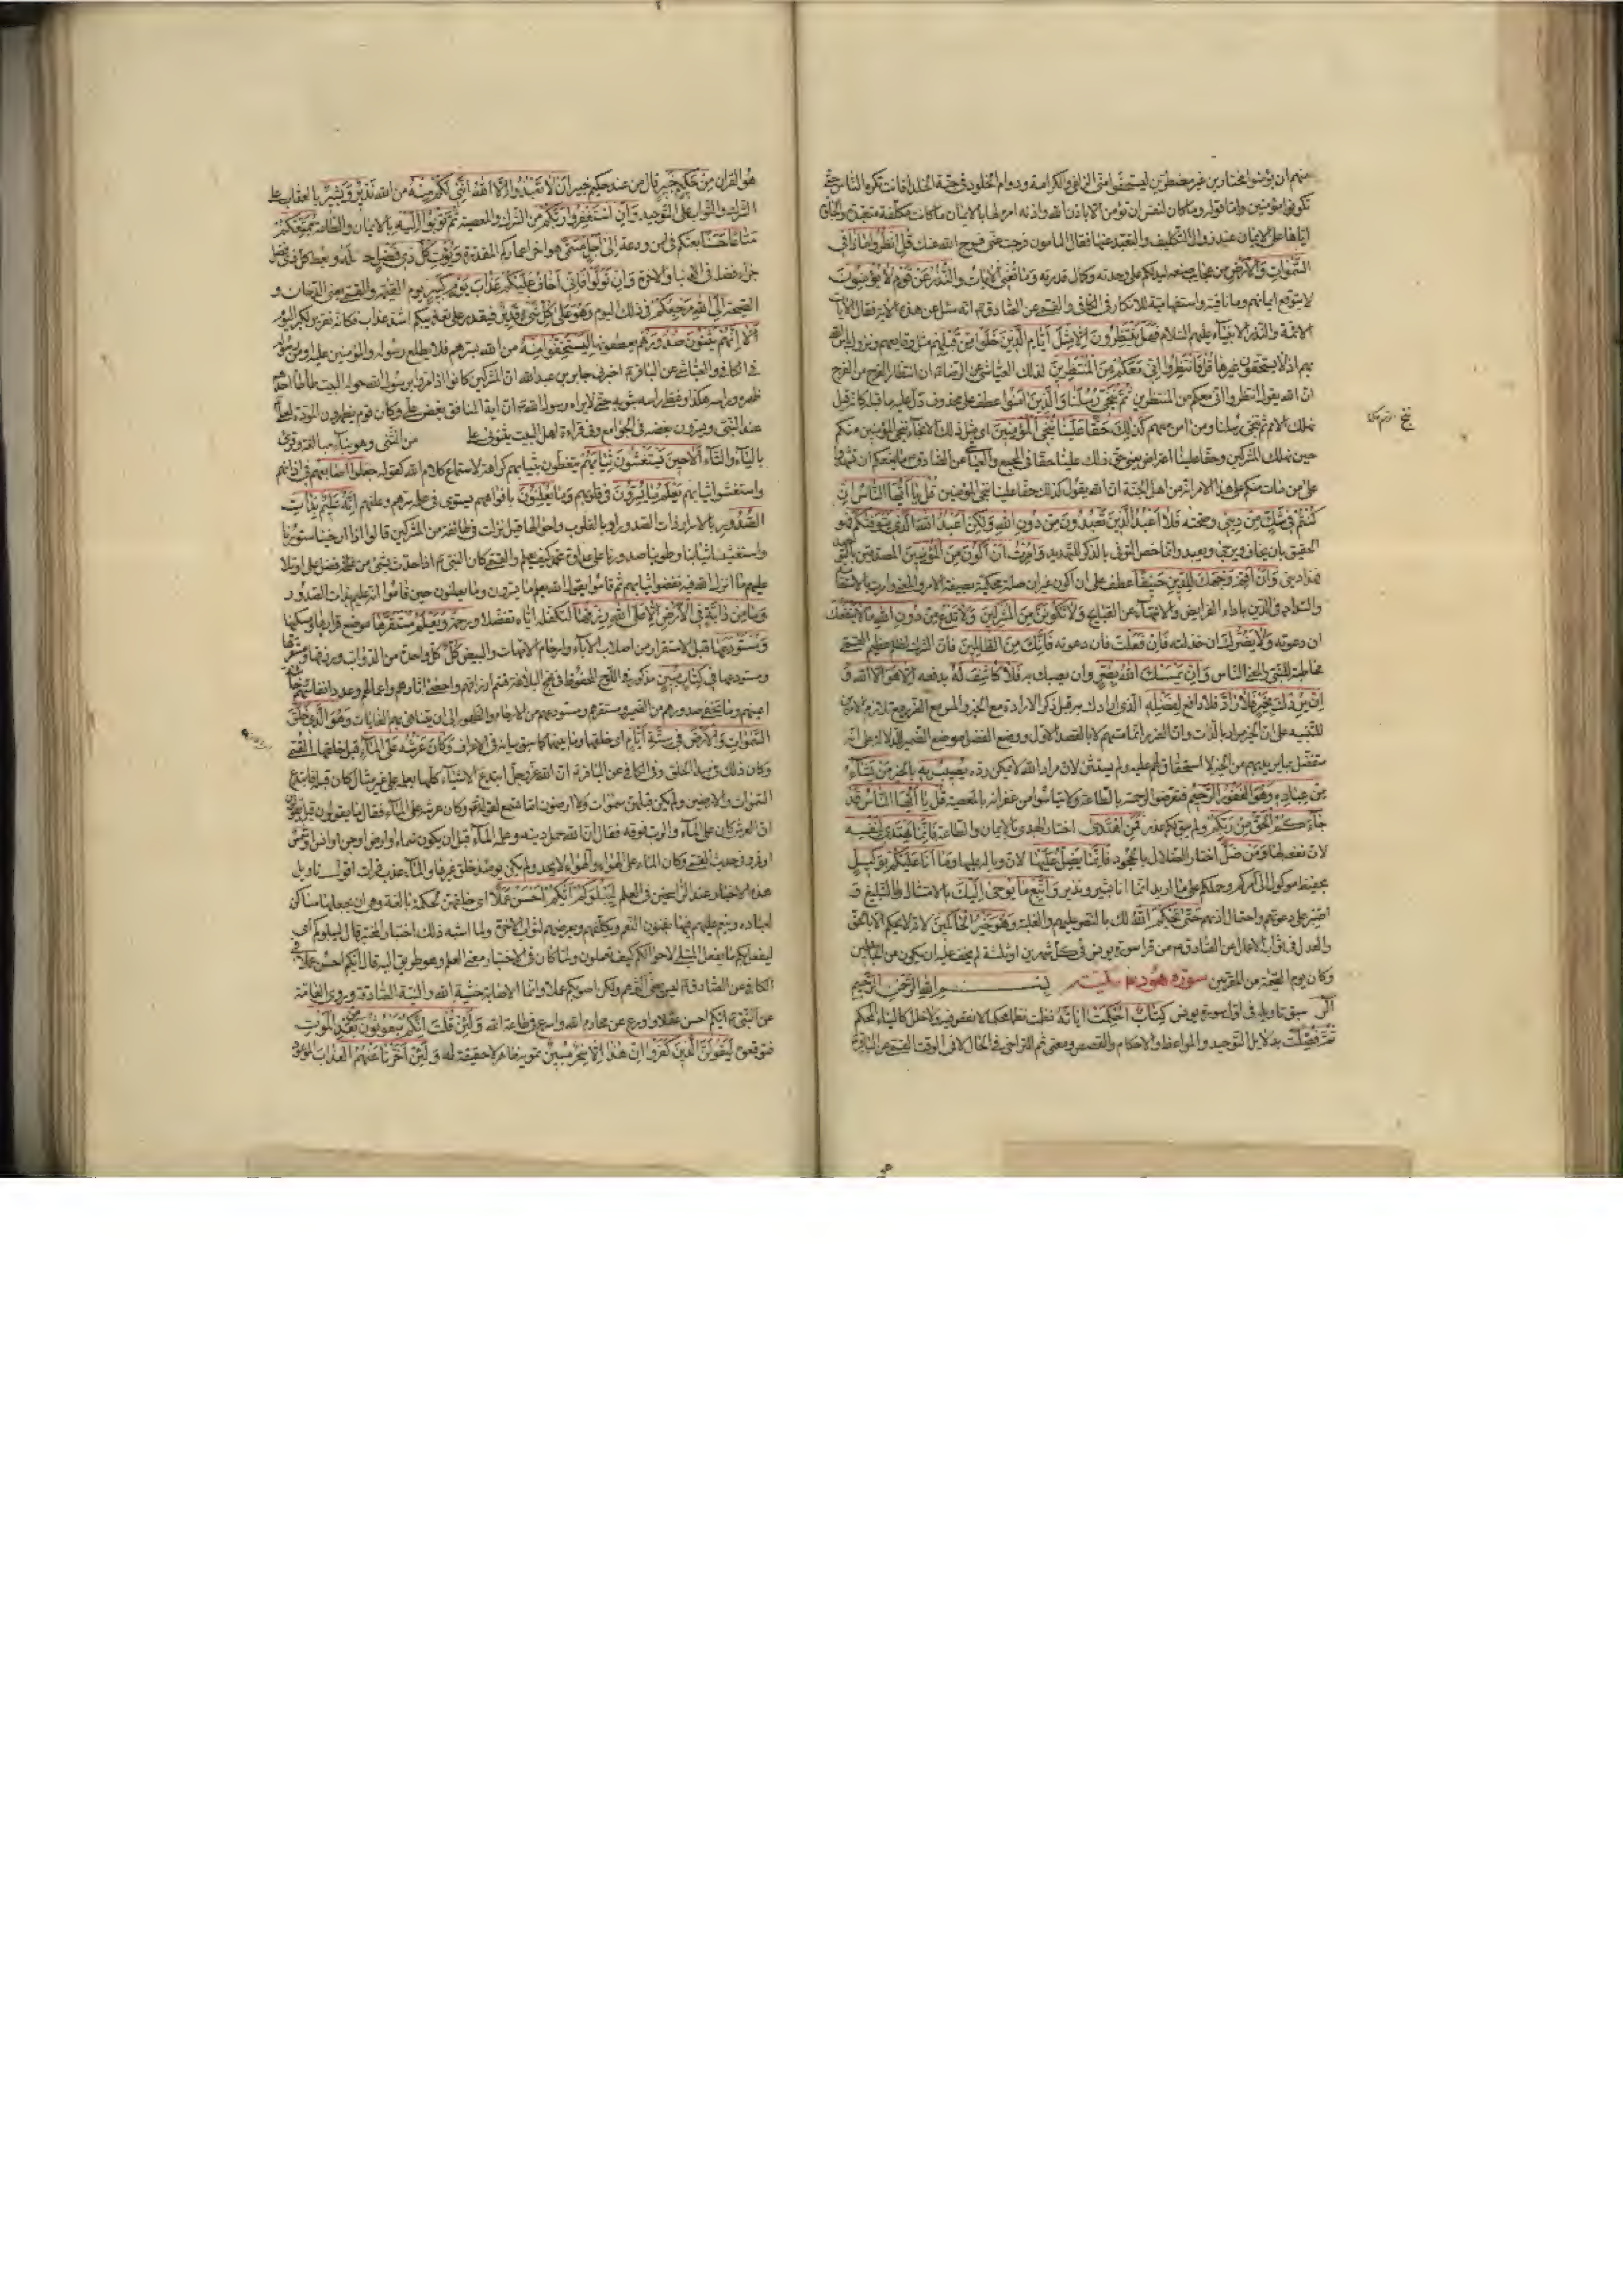 منهم ان يؤمنوا مختارين غير مضطرين ليستحقوا مني الزلفى والكرامة ودوام الخلود في جنة الخلد افانت تكره الناس حتى
تكونوا مؤمنين واما قوله وما كان لنفس ان تؤمن الا باذن الله واذنه امره لها بالايمان ما كانت مكلفة متعبدة والجاؤه
اياها على الايمان عند زوال التكليف والتعبد عنها فقال المامون فرجت عني فرج الله عنك قل انظروا ماذا في
السموات والارض من عجايب صنعه ليدلكم على وحدته وكمال قدرته وما تغني الايات والنذر عن قوم لا يؤمنون
لا يتوقع ايمانهم وما نافية او استفهامية للانكار في الكافي والقمي عن الصادق ع انه سئل عن هذه الاية فقال الايات
الائمة والنذر الانبياء عليهم السلام فهل ينتظرون الا مثل ايام الذين خلوا من قبلهم مثل وقايعهم ونزول باس الله
بهم اذ لا يستحقون غيرها قل فانتظروا اني معكم من المنتظرين لذلك العياشي عن الرضا ع ان انتظار الفرج من الفرج
ان الله يقول انتظروا اني معكم من المنتظرين ثم ننجي رسلنا والذين امنوا عطف على محذوف دل عليه ما قبله كانه قيل
نهلك الامم ثم ننجي رسلنا ومن امن معهم كذلك حقا علينا ننجي المؤمنين اي مثل ذلك الانجاء ننجي المؤمنين منكم
حين نهلك المشركين وحقا علينا اعتراض يعني حق ذلك علينا حقا في المجمع والعياشي عن الصادق ع ما يمنعكم ان تشهدوا
على من مات منكم على هذا الامر انه من اهل الجنة ان الله يقول كذلك حقا علينا ننجي المؤمنين قل يا ايها الناس ان
كنتم في شك من ديني وصحته فلا اعبد الذين تعبدون من دون الله ولكن اعبد الله الذي يتوفيكم فهو
الحقيق بان يخاف ويرجى ويعبد وانما خص التوفي بالذكر للتهديد وامرت ان اكون من المؤمنين المصدقين بالتوحيد
فهذا ديني وان اقم وجهك للدين حنيفا عطف على ان اكون غير ان صلة محكية بصيغة الامر والمعنى وامرت بالاستقامة
والسداد في الدين باداء الفرايض والانتهاء عن القبايح ولا تكونن من المشركين ولا تدع من دون الله ما لا ينفعك
ان دعوته ولا يضرك ان خذلته فان فعلت فان دعوته فانك من الظالمين فان الشرك لظلم عظيم القمي
مخاطبة للنبي والمعني الناس وان يمسسك الله بضر وان يصبك به فلا كاشف له يدفعه الا هو الا الله و
ان يردك بخير فلا راد فلا دافع لفضله الذي ارادك به قيل ذكر الارادة مع الخير والمس مع الضر مع تلازم الامرين
للتنبيه على ان الخير مراد بالذات وان الضر انما مسهم لا بالقصد الاول ووضع الفضل موضع الضمير للدلالة على انه
متفضل بما يريد بهم من الخير لا استحقاق لهم عليه ولم يستثن لان مراد الله لا يمكن رده يصيب به بالخير من يشاء
من عباده وهو الغفور الرحيم فتعرضوا لرحمته بالطاعة ولا تياسوا من غفرانه بالمعصية قل يا ايها الناس قد
جاءكم الحق من ربكم ولم يبق لكم عذر فمن اهتدى اختار الهدى بالايمان والطاعة فانما يهتدي لنفسه
لان نفعه لها ومن ضل اختار الضلال بالجحود فانما يضل عليها لان وباله عليها وما انا عليكم بوكيل
بحفيظ موكول الي امركم وحملكم على ما اريد انما انا بشير ونذير واتبع ما يوحى اليك بالامتثال والتبليغ و
اصبر على دعوتهم واحتمال اذيهم حتى يحكم الله لك بالنصر عليهم والغلبة وهو خير الحاكمين لانه لا يحكم الا بالحق
والعدل في ثواب الاعمال عن الصادق ع من قرا سورة يونس في كل شهرين او ثلثة لم يخف عليه ان يكون من الجاهلين
وكان يوم القيمة من المقربين سورة هود ع مكية بسم الله الرحمن الرحيم
الر سبق تاويله في اول سورة يونس كتاب احكمت اياته نظمت نظما محكما لا نقض فيه ولا خلل كالبناء المحكم
ثم فصلت بدلايل التوحيد والمواعظ والاحكام والقصص ومعنى ثم التراخي في الحال لا في الوقت القمي عن الباقر ع
هو القران من حكيم خبير قال من عند حكيم خبير ان لا تعبدوا الا الله انني لكم منه من الله نذير وبشير بالعقاب على
الشرك والثواب على التوحيد وان استغفروا ربكم من الشرك والمعصية ثم توبوا اليه بالايمان والطاعة يمتعكم
متاعا حسنا يعشكم في امن ودعة الى اجل مسمى هو اخر اعماركم المقدرة ويؤت كل ذي فضل فضله ويعط كل ذي فضل
جزاء فضله في الدنيا والاخرة وان تولوا فاني اخاف عليكم عذاب يوم كبير يوم القيمة والقمي يعني الدخان و
الصيحة الى الله مرجعكم في ذلك اليوم وهو على كل شيء قدير فيقدر على تعذيبكم اشد عذاب وكانه تقرير لكبر اليوم
الا انهم يثنون صدورهم يعطفونها ليستخفوا منه من الله بسرهم فلا يطلع رسوله والمؤمنين عليه
في الكافي والعياشي عن الباقر ع اخبرني جابر بن عبد الله ان المشركين كانوا اذا مروا برسول الله حول البيت طاطا احدهم
ظهره وراسه هكذا وغطى راسه بثوبه حتى لا يراه رسول الله
بالياء والتاء الا حين يستغشون ثيابهم يتغطون بثيابهم كراهة لاستماع كلام الله كقوله جعلوا اصابعهم في اذانهم
واستغشوا ثيابهم يعلم ما يسرون في قلوبهم وما يعلنون بافواههم يستوي في علمه سرهم وعلنهم انه عليم بذات
الصدور بالاسرار ذات الصدور او بالقلوب واحوالها قيل نزلت في طائفة من المشركين قالوا اذا ارخينا ستورنا
واستغشينا ثيابنا وطوينا صدورنا على عداوة محمد كيف يعلم والقمي كان النبي ص اذا حدث بشيء من فضل علي او تلا
عليهم ما انزل الله فيه نفضوا ثيابهم ثم قاموا يقول الله يعلم ما يسرون وما يعلنون حين قاموا انه عليم بذات الصدور
وما من دابة في الارض الا على الله رزقها لتكفله اياه تفضلا ورحمة ويعلم مستقرها موضع قرارها ومسكنها
ومستودعها قبل الاستقرار من اصلاب الاباء وارحام الامهات والبيض كل كل واحد من الدواب ورزقها ومستقرها
ومستودعها في كتاب مبين مذكور في اللوح المحفوظ في نهج البلاغة قسم ارزاقهم واحصى اثارهم واعمالهم وعدد انفاسهم وخائنة
اعينهم وما تخفي صدورهم من الضمير ومستقرهم ومستودعهم من الارحام والظهور الى ان يتناهى بهم الغايات وهو الذي خلق
السموات والارض في ستة ايام اي خلقهما وما بينهما كما سبق بيانه في الاعراف وكان عرشه على الماء قبل خلقهما القمي
وكان ذلك في بدا الخلق وفي الكافي عن الباقر ع ان الله عز وجل ابتدع الاشياء كلها بعلمه على غير مثال كان قبله فابتدع
السموات والارضين ولم يكن قبلهن سموات ولا ارضون اما تسمع لقوله تع وكان عرشه على الماء
ان العرش كان على الماء والرب فوقه فقال ان الله حمل دينه وعلمه الماء قبل ان يكون سماء او ارض او جن او انس او شمس
او قمر وحديث القمي وكان الماء على الهواء والهواء لا يحد ولم يكن يومئذ خلق غيرهما والماء عذب فرات اقول وتاويل
هذه الاخبار عند الراسخين في العلم ليبلوكم ايكم احسن عملا اي خلقهن لحكمة بالغة وهي ان يجعلها مساكن
لعباده وينعم عليهم فيها بفنون النعم ويكلفهم ويعرضهم لثواب الاخرة ولما اشبه ذلك اختبار المختبر قال ليبلوكم اي
ليفعل بكم ما يفعل المبتلي لاحوالكم كيف تعملون ولما كان في الاختبار معنى العلم وهو طريق اليه قال ايكم احسن عملا في
الكافي عن الصادق ع ليس يعني اكثرهم ولكن اصوبكم عملا وانما الاصابة خشية الله والنية الصادقة وروى العامة
عن النبي ص ايكم احسن عقلا واورع عن محارم الله واسرع في طاعة الله ولئن قلت انكم مبعوثون من بعد الموت
فتوقعوه ليقولن الذين كفروا ان هذا الا سحر مبين تمويه ظاهر لا حقيقة له ولئن اخرنا عنهم العذاب الموعود